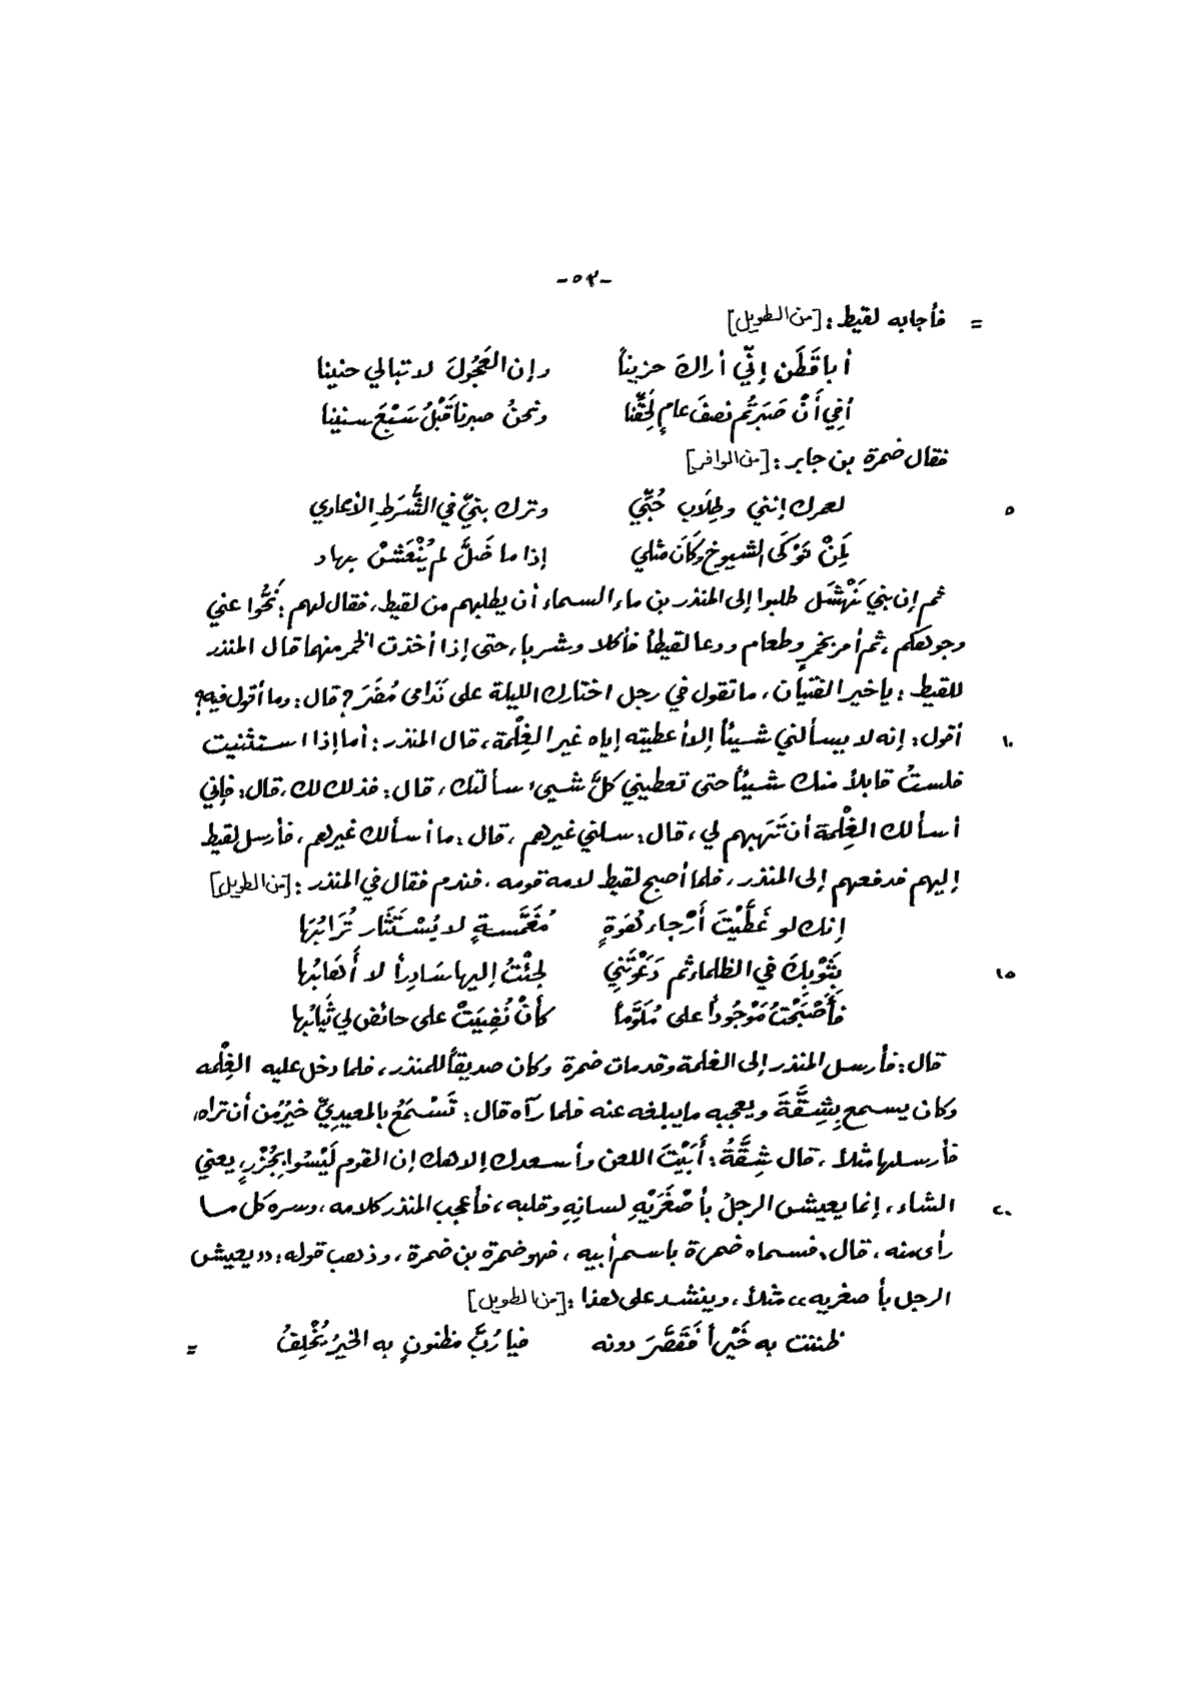 -٥٢-
= فأجابه لقيط : [من الطويل]
أبا قَطَن إنّي أراك حزيناً وإن العَجُولَ لا تبالي حنينا
أفِي أَنْ صَبَرتُم نصفَ عامٍ لِحَقِّنا ونحنُ صبرنا قَبْلُ سَبْعَ سنينا
فقال ضمرة بن جابر : [من الوافر]
٥ لعمرك إنني وطِلَابِ حُبِّي وترك بنيَّ في الشُّرَطِ الأعادي
لَمِنْ نَوْكَى الشيوخ وكَانَ مثلي إذا ما ضَلَّ لم يُنْعَشْ بهاد
ثم إن بني نَهْشَل طلبوا إلى المنذر بن ماء السماء أن يطلبهم من لقيط، فقال لهم : نَحُّوا عني
وجوهكم ، ثم أمر بخمرٍ وطعام ودعا لقيطاً فأكلا وشربا، حتى إذا أخذت الخمر منهما قال المنذر
للقيط : يا خير الفتيان ، ما تقول في رجل اختارك الليلة على نَدَامى مُضَرَ ؟ قال : وما أقول فيه ؟
١٠ أقول : إنه لا يسألني شيئاً إلا أعطيته إياه غير الغِلْمة ، قال المنذر : أما إذا استثنيت
فلستُ قابلاً منك شيئاً حتى تعطيني كلَّ شييء سألتك ، قال : فذلك لك ، قال : فإني
أسألك الغِلْمة أن تَهَبهم لي ، قال : سلني غيرهم ، قال : ما أسألك غيرهم ، فأرسل لقيط
إليهم فدفعهم إلى المنذر ، فلما أصبح لقيط لامه قومه ، فندم فقال في المنذر : [من الطويل]
إنك لو غَطَّيْتَ أَرْجاء هُوَةٍ مُغَمَّسةٍ لا يُسْتَثَار تُرَابُهَا
١٥ بِثَوْبِكَ في الظلماء ثم دَعَوْتَنِي لجِئْتُ إليها سَادِراً لا أَهَابُها
فَأَصْبَحْتُ مَوْجُوداً على مُلَوَّماً كأنْ نُضِيَتْ على حائض لي ثيابُها
قال : فأرسل المنذر إلى الغلمة وقد مات ضمرة وكان صديقاً للمنذر ، فلما دخل عليه الغِلْمه
وكان يسمع بِشِقَّةَ ويعجبه ما يبلغه عنه فلما رآه قال : تَسْمَعُ بالمعيديِّ خيرٌ من أن تراه،
فأرسلها مثلاً ، قال شِقَّةُ : أَبَيْتَ اللعن وأسعدك إلاهك إن القوم لَيْسُوا بجُزْرٍ، يعني
٢٠ الشاء ، إنما يعيش الرجلُ بأَصْغَرَيْهِ لسانِهِ وقلبه ، فأعجب المنذر كلامه ، وسره كل مــا
رأى منه ، قال : فسماه ضمرة باسم أبيه ، فهو ضمرة بن ضمرة ، وذهب قوله : «يعيش
الرجل بأصغريه» مثلاً ، وينشد على هذا : [من الطويل]
ظننت به خَيْراً فَقَصَّرَ دونه فيا رُبَّ مظنونٍ به الخيرُ يُخْلِفُ =